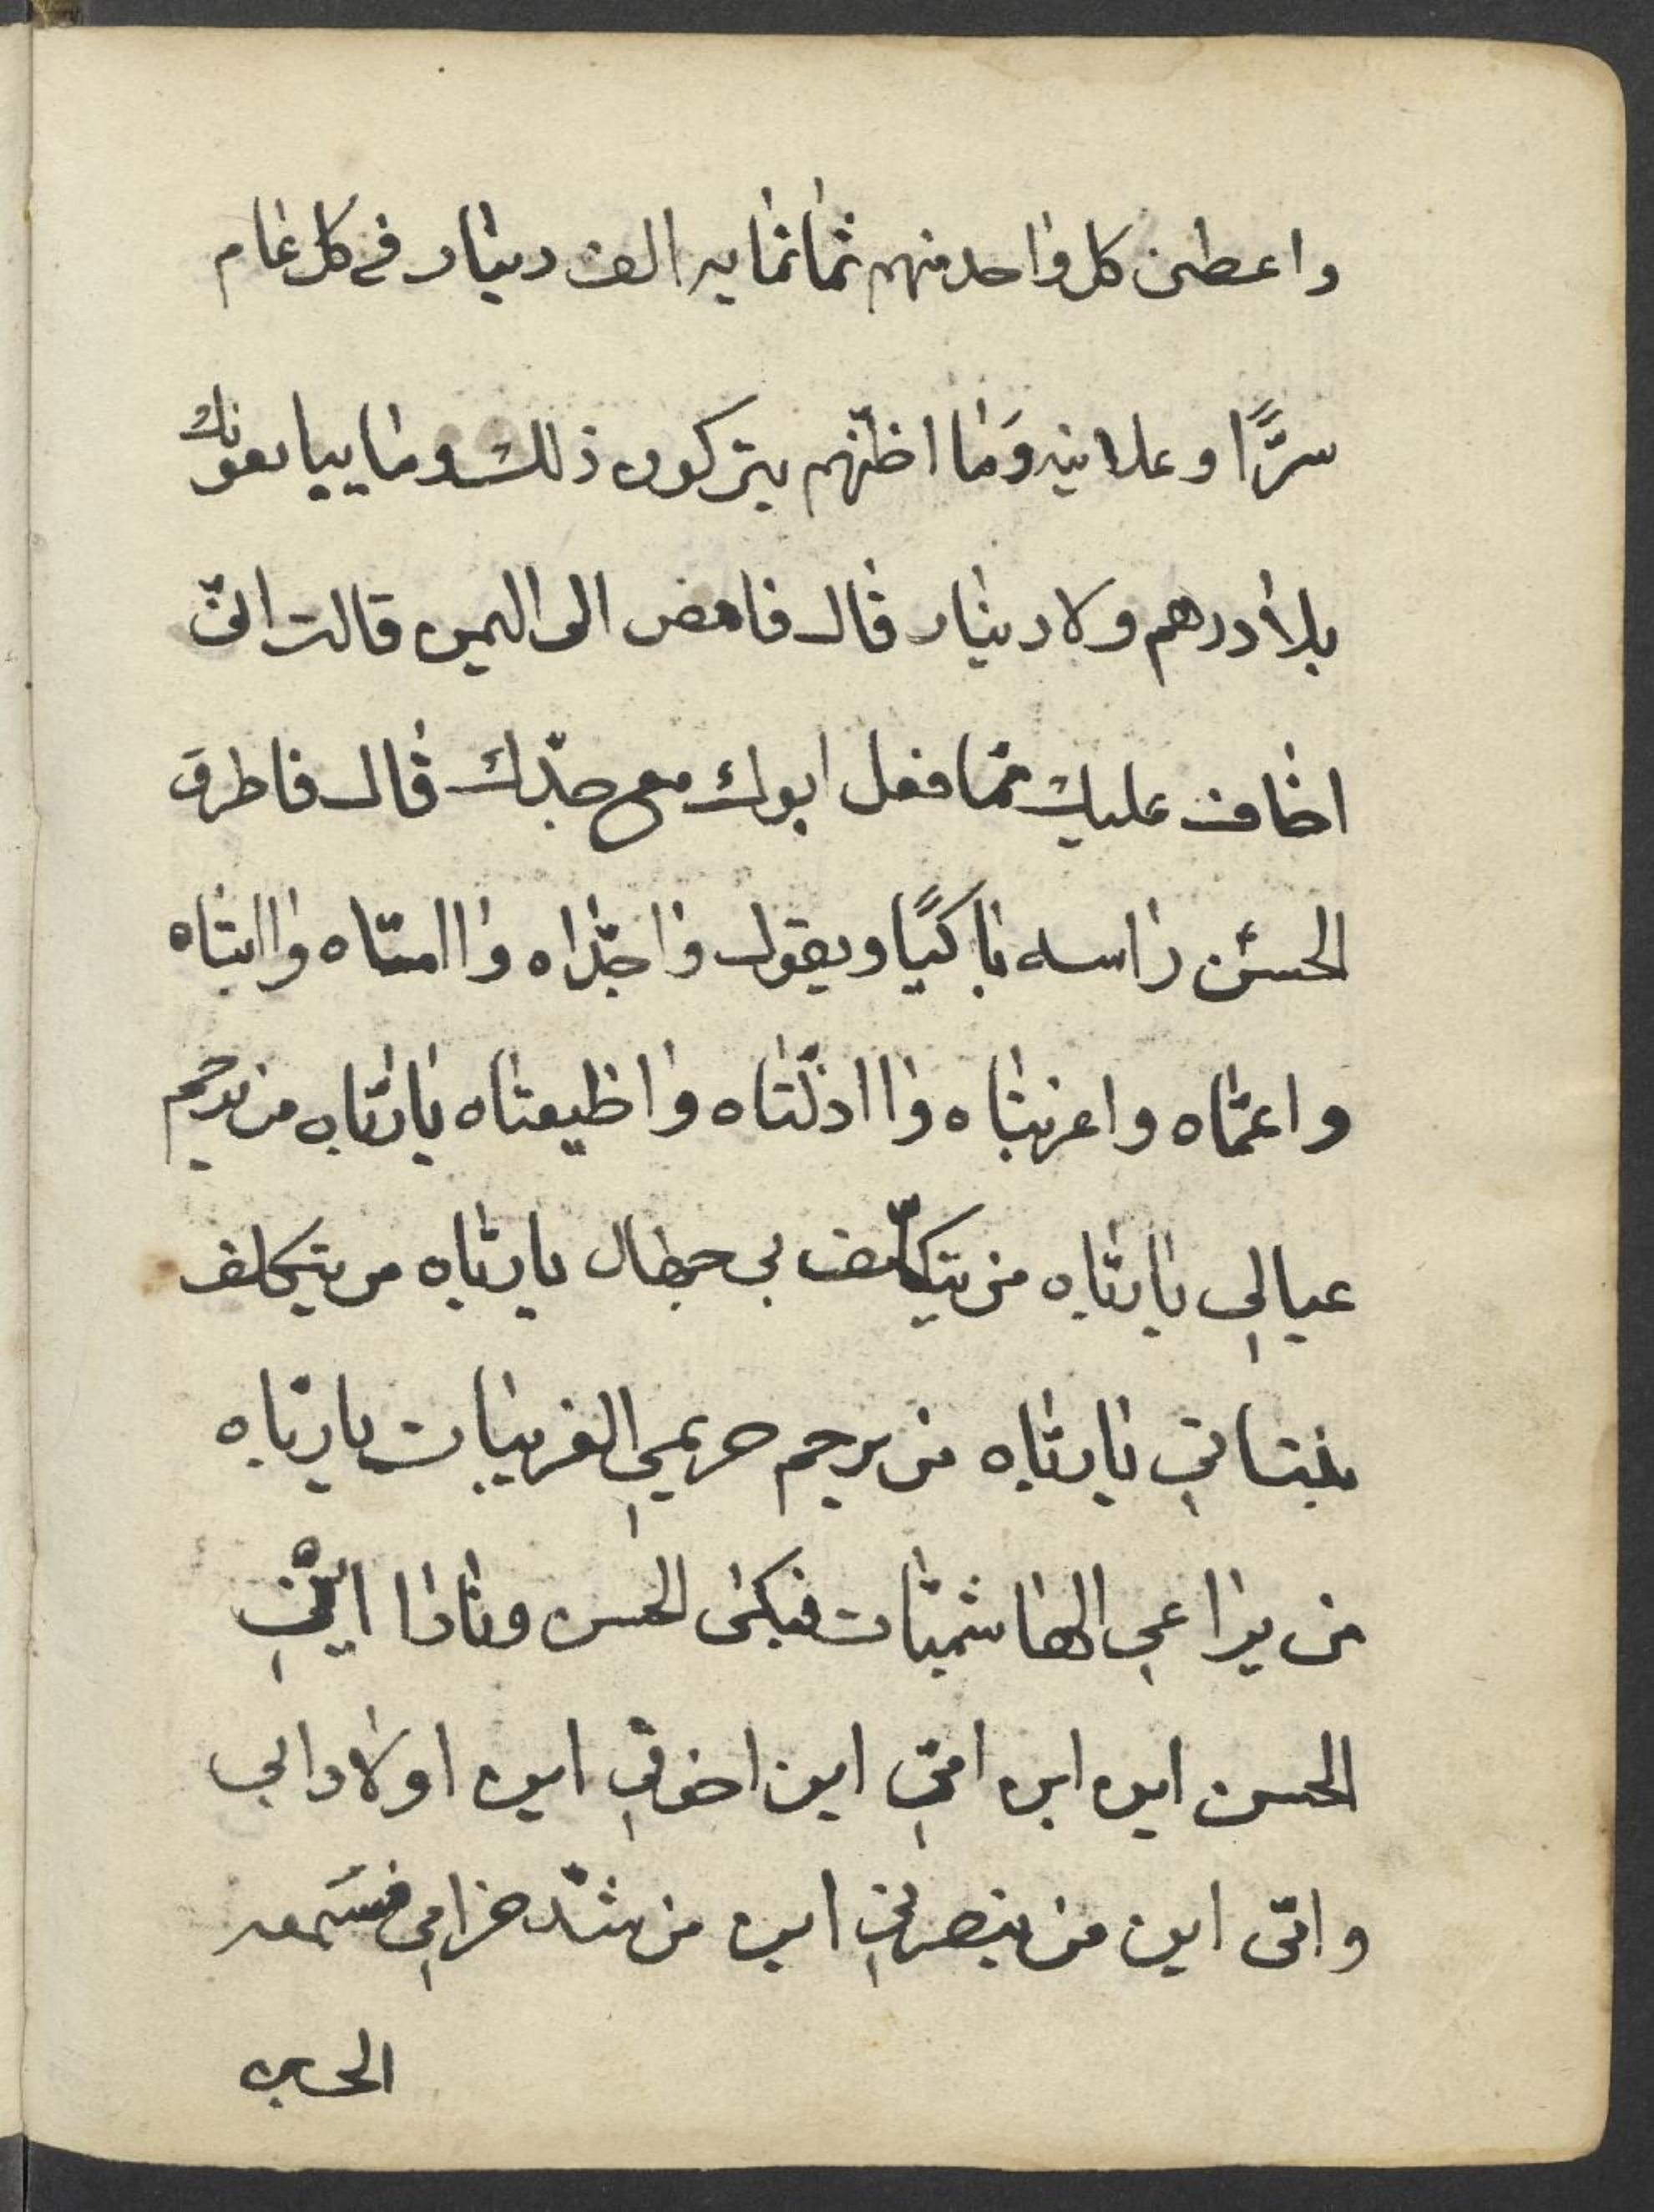 واعطى كل واحد منهم ثماثمايه الف دينار في كل عام
سرًّا وعلانيه وَما اظنّهم يتركون ذلك وما يبايعونك
بلا درهم ولا دينار قال فامض الى اليمن قالت انّى
اخاف عليك ممّا فعل ابوك مع جدّك قال فاطرق
الحسن راسه باكيًا ويقول واجدّاه واامّاه واابتاه
واعمّاه واغربتاه وااذلّتاه واظيعتاه ياربّاه من يرحم
عيالي ياربّاه من يتكلّف بي جهال ياربّاه من يتكلف
بنتاتي ياربّاه من يرحم حريمي الغريبات ياربّاه
من يراعي الهاشميّات فبكى الحسن ونادا ايني
الحسن اين ابن امّي اين اخوتي اين اولاد ابي
وامّى اين من ينصرني اين من شدّ حزامي فسَمعه
الحسين